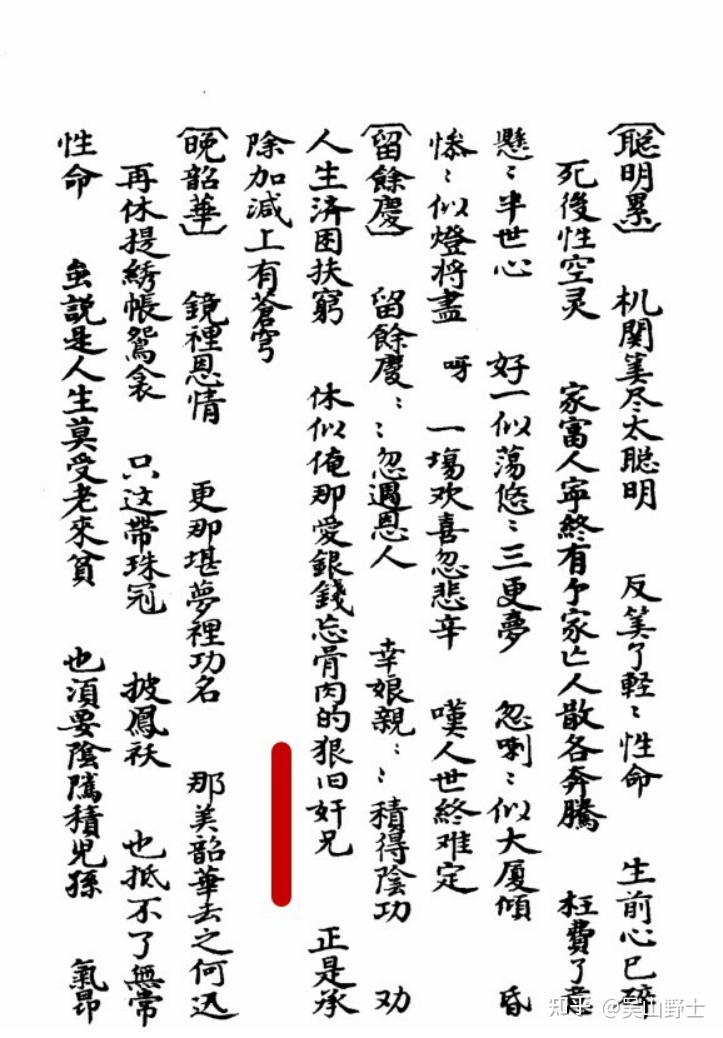 〔聪明累〕 机関筭尽太聪明 反筭了軽〻性命 生前心已碎
死後性空灵 家富人寧終有个家亡人散各奔騰 枉費了意
懸〻半世心 好一似荡悠〻三更夢 忽喇〻似大厦傾 昏
惨〻似燈將盡 呀 一場欢喜忽悲辛 嘆人世終难定
〔留餘慶〕 留餘慶〻〻忽遇恩人 幸娘親〻〻積得陰功 劝
人生済困扶窮 休似俺那愛銀錢忘骨肉的狠旧奸兄 正是承
除加减上有蒼穹
〔晚韶華〕 鏡裡恩情 更那堪夢裡功名 那美韶華去之何迅
再休提綉帳鴛衾 只这帶珠冠 披鳳袄 也抵不了無常
性命 虽説是人生莫受老來貧 也湏要陰隲積児孫 氣昂
知乎 @吴山野士